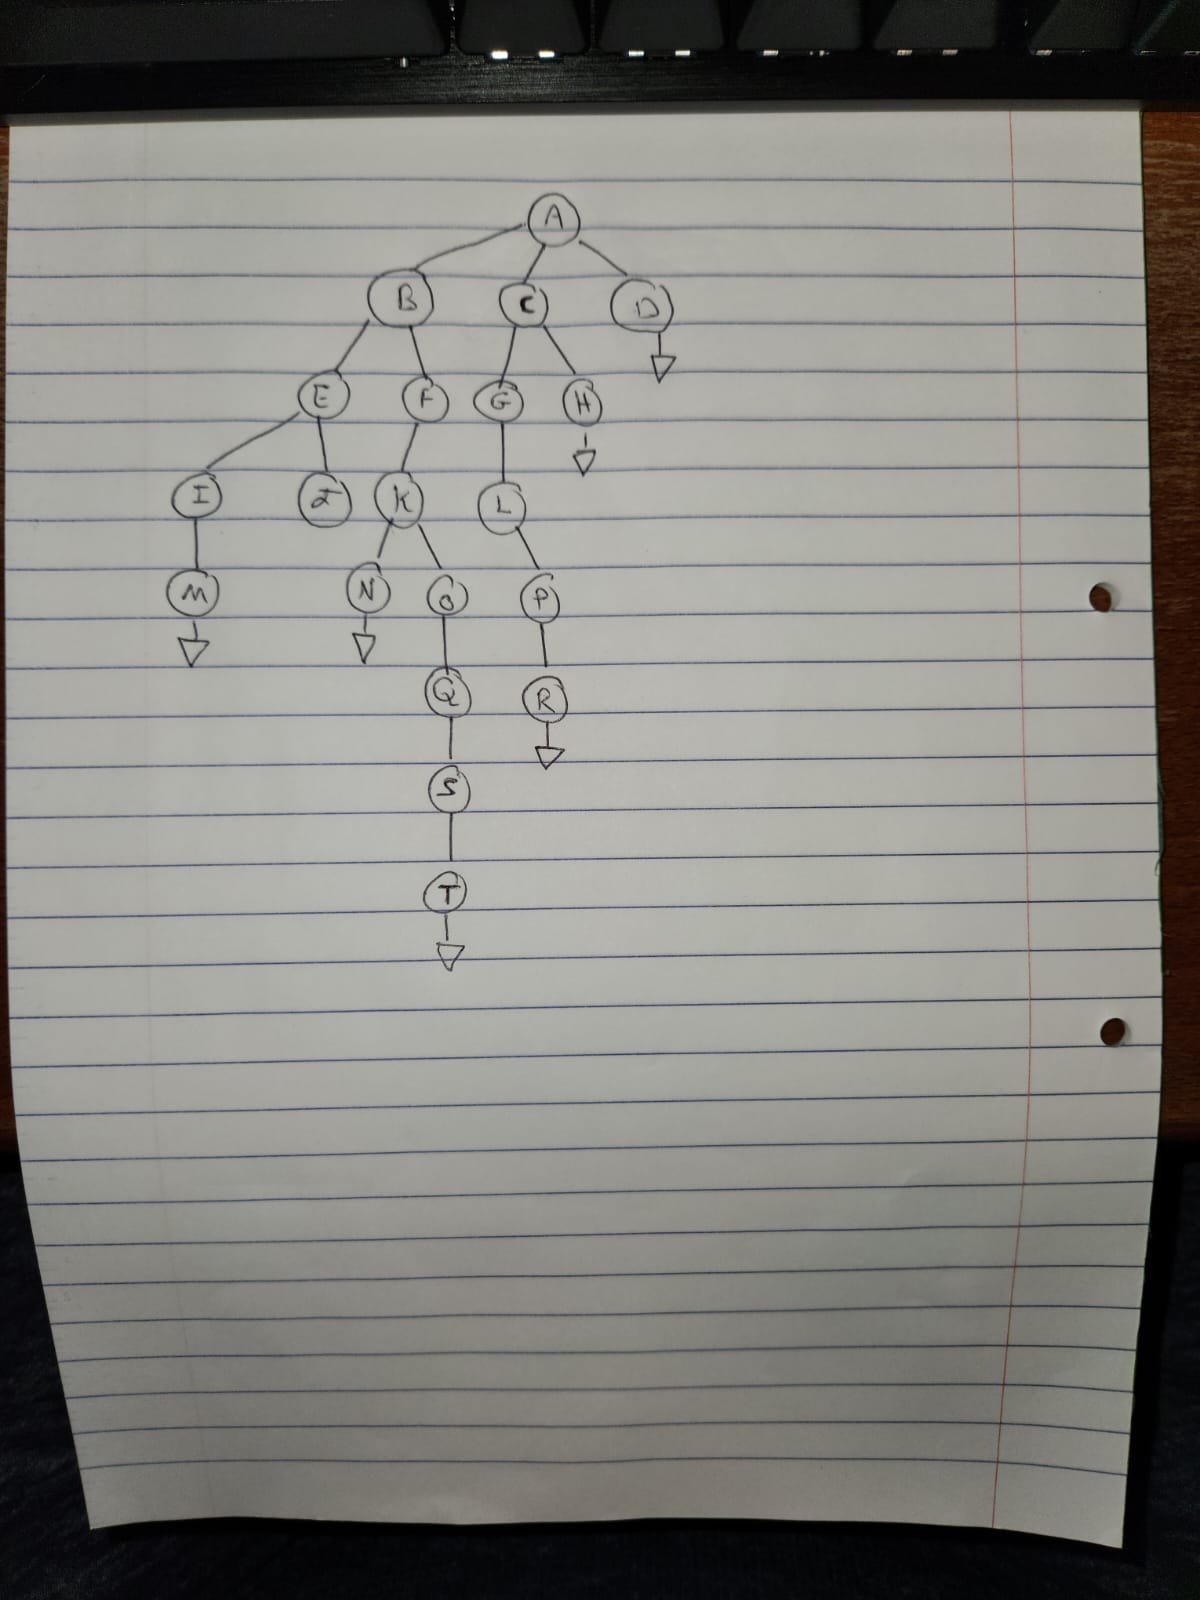 A
B C D
E F G H
I J K L
M N O P
Q R
S
T